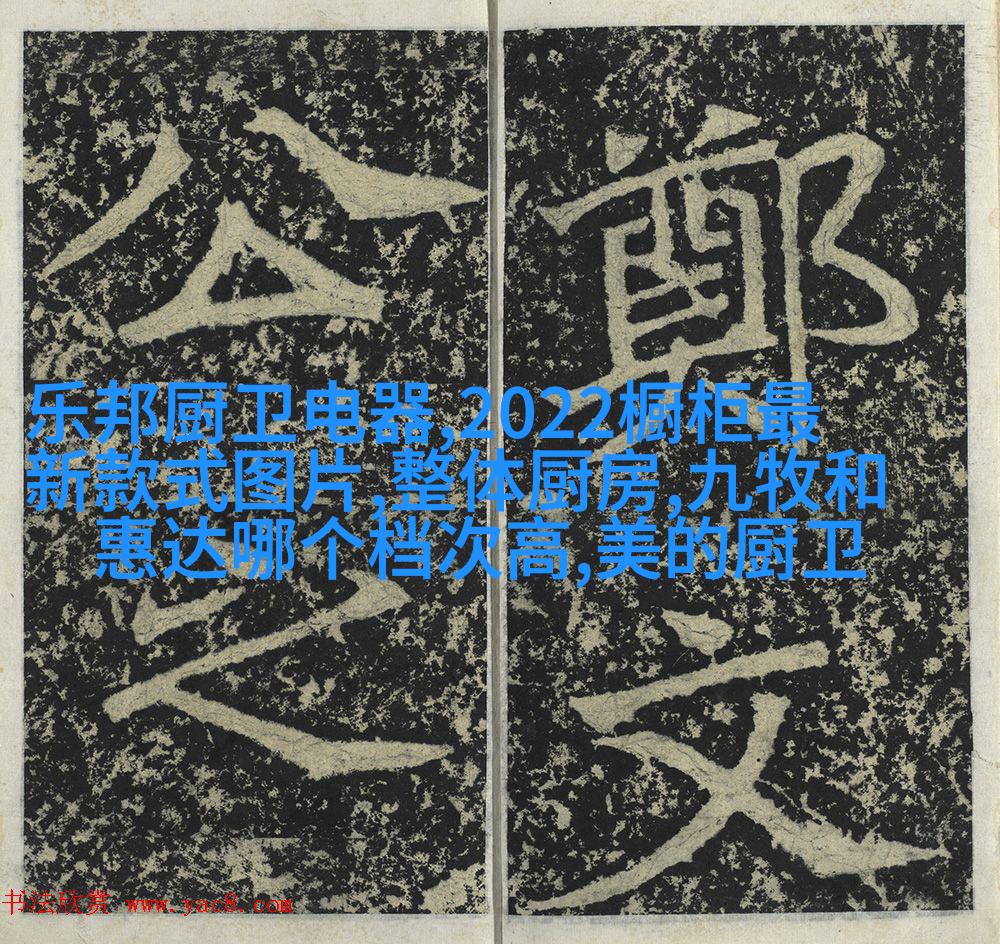 鄭文
公之
乐邦厨卫电器,2022橱柜最
新款式图片,整体厨房,九牧和
惠达哪个档次高,美的厨卫
书法欣赏 www.yac8.com